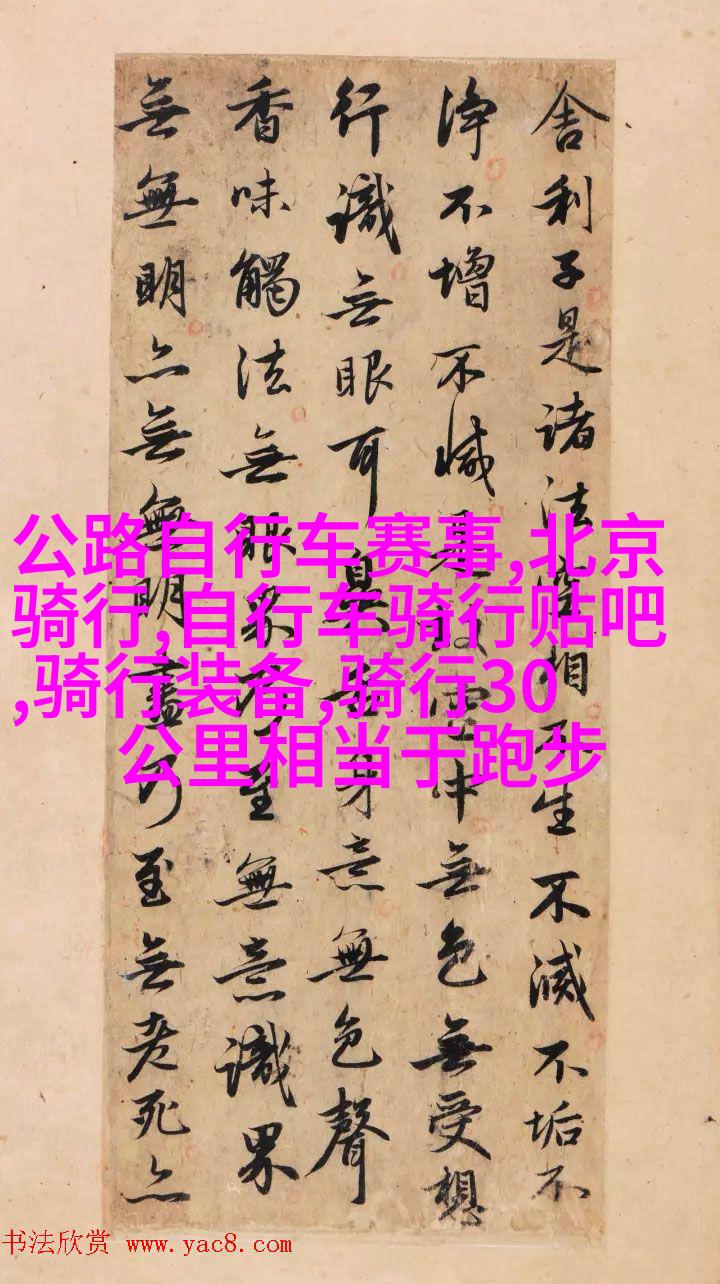 舍利子是諸法空相不生不滅不垢不
淨不增不減是故空中無色無受想
行識無眼耳鼻舌身意無色聲
香味觸法無眼界乃至無意識界
無無明亦無無明盡乃至無老死亦
公路自行车赛事,北京
骑行,自行车骑行贴吧
,骑行装备,骑行30
公里相当于跑步
书法欣赏 www.yac8.com